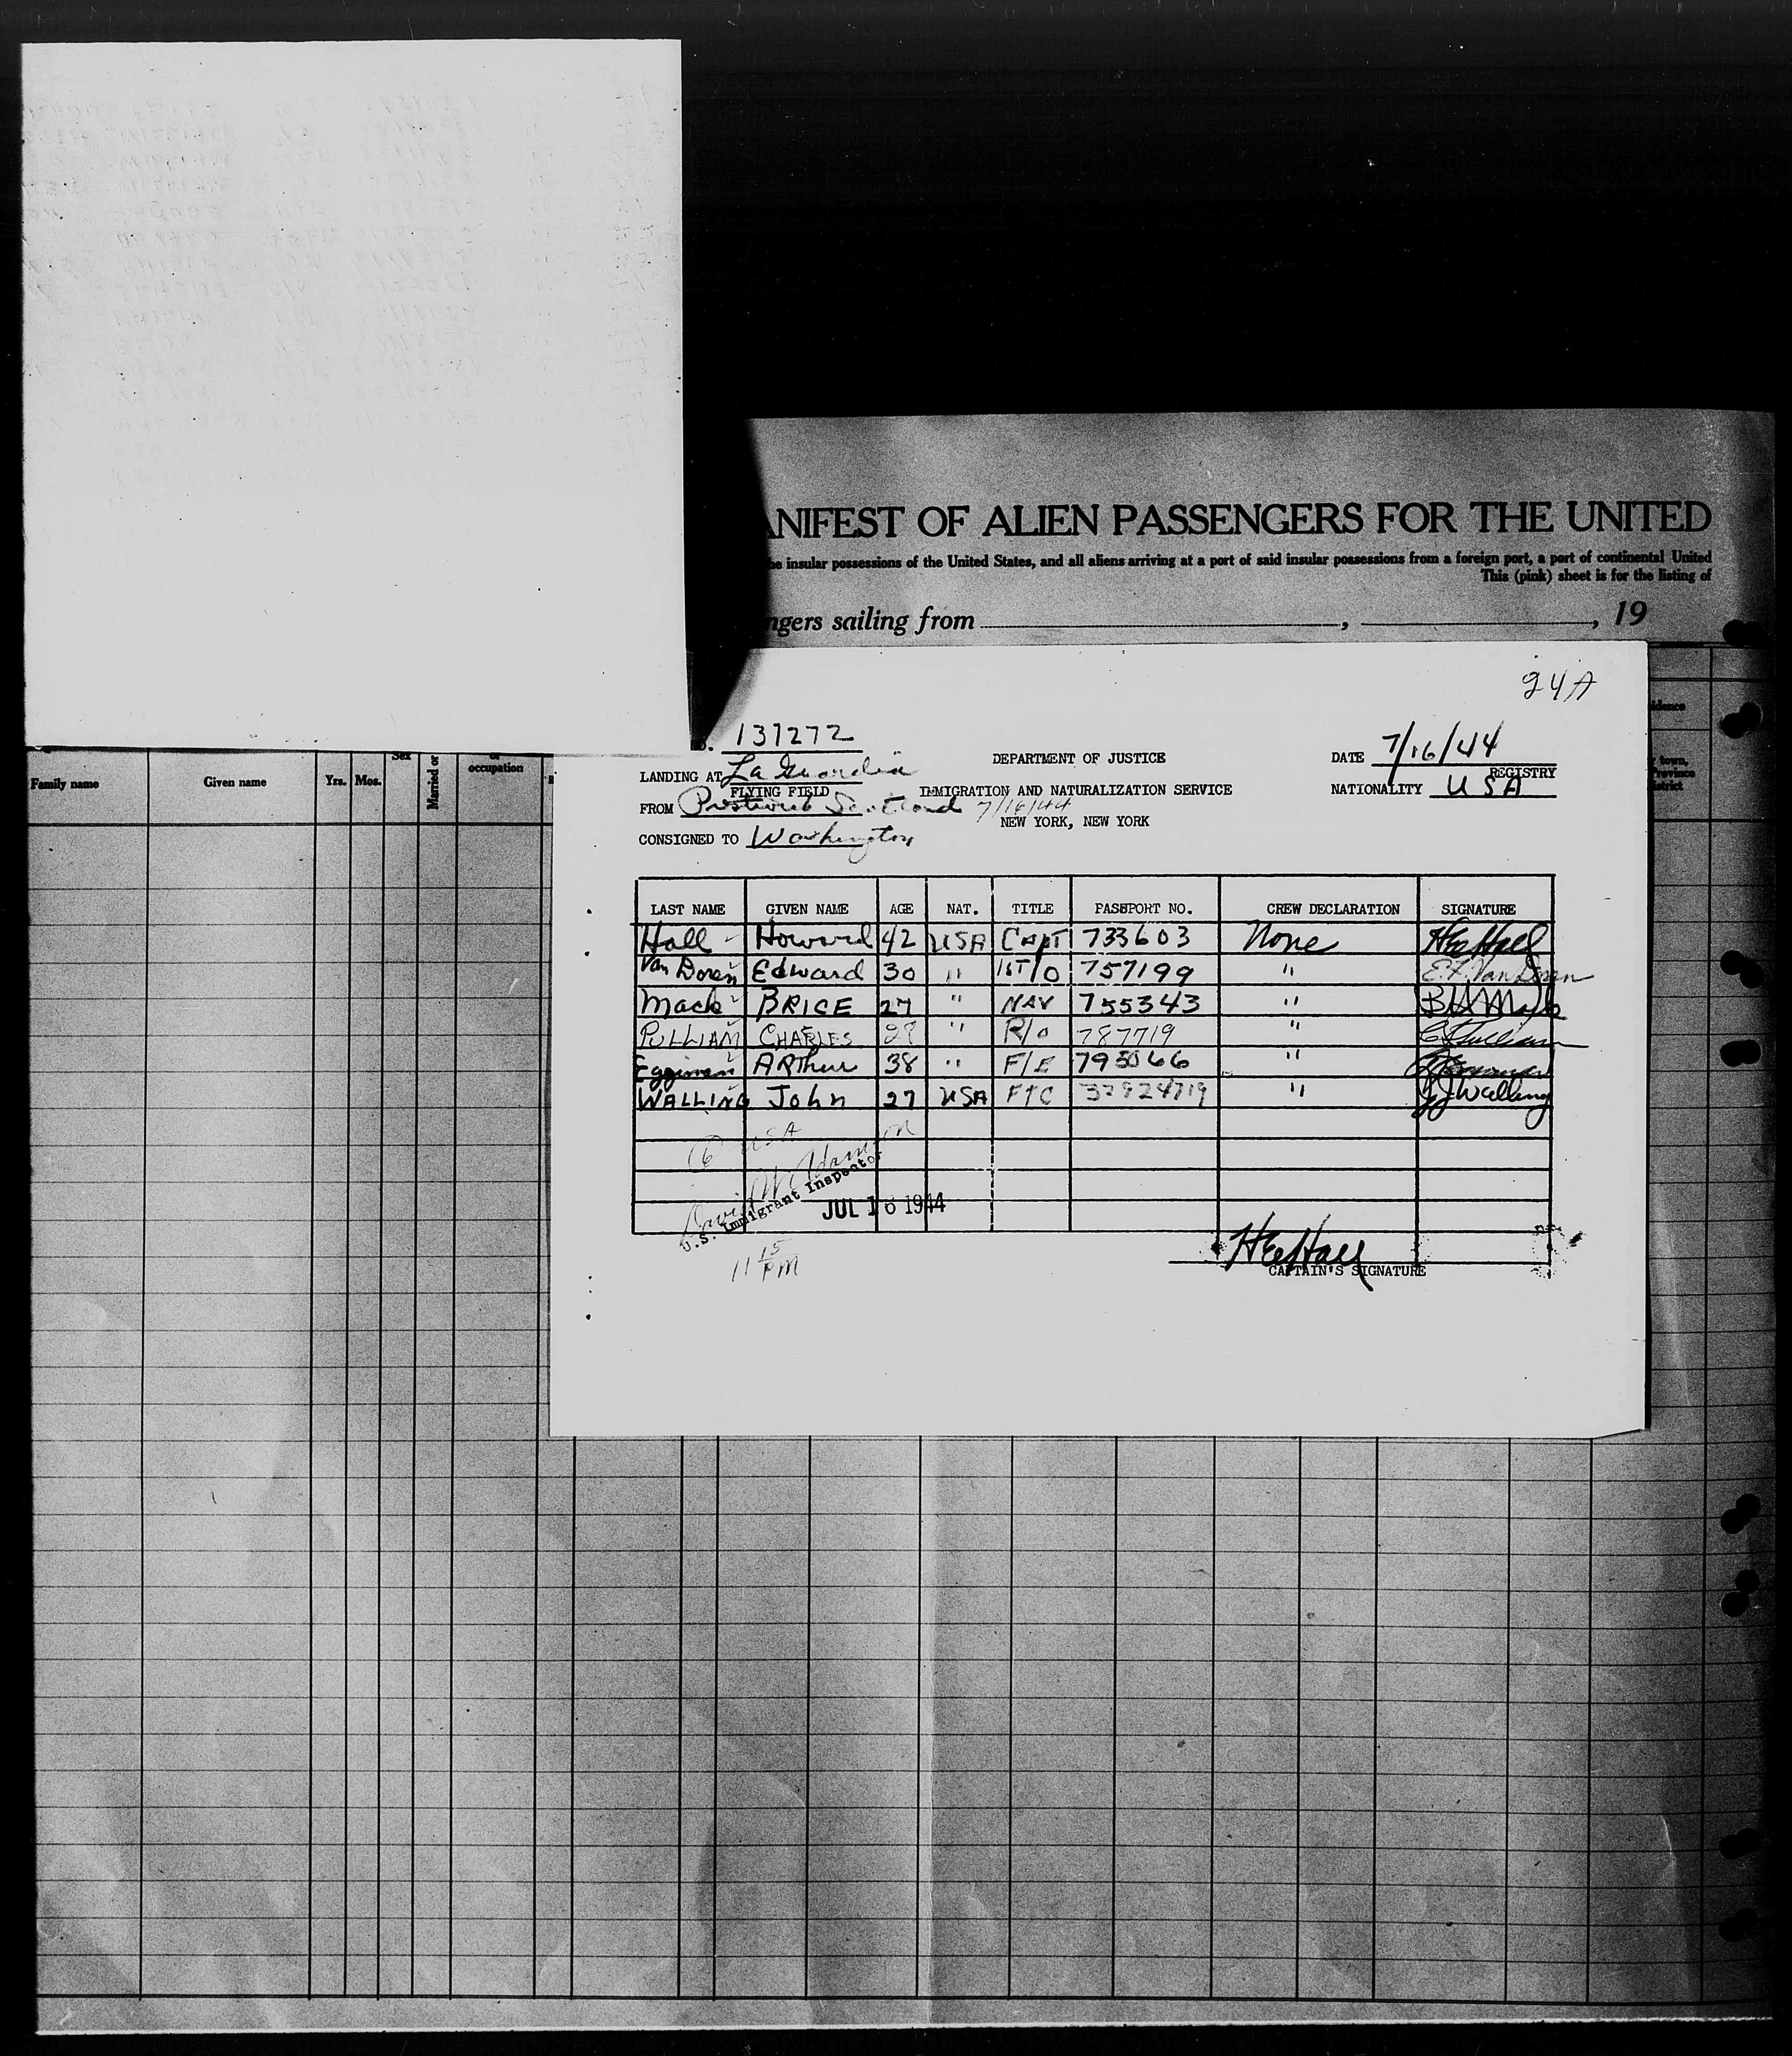 ANIFEST OF ALIEN PASSENGERS FOR THE UNITED
he insular possessions of the United States, and all aliens arriving at a port of said insular possessions from a foreign port, a port of continental United
This (pink) sheet is for the listing of
ngers sailing from , , 19
24A
137272
LANDING AT La Guardia DEPARTMENT OF JUSTICE DATE 7/16/44
FLYING FIELD IMMIGRATION AND NATURALIZATION SERVICE REGISTRY
NATIONALITY USA
FROM Prestwick Scotland 7/16/44
NEW YORK, NEW YORK
CONSIGNED TO Washington
LAST NAME GIVEN NAME AGE NAT. TITLE PASSPORT NO. CREW DECLARATION SIGNATURE
Hall Howard 42 USA CAPT 733603 None HE Hall
Van Doren Edward 30 " 1ST/O 757199 " E.F. Van Doren
Mack BRICE 27 " NAV 755343 " B H Mack
PULLIAM CHARLES " R/O 787719 "
Eggiman ARThur 38 " F/E "
WALLING John 27 USA 32924719 " J J Walling
(6) USA
David W Adamson
U.S. Immigrant Inspector
JUL 16 1944
11 15 PM
HE Hall
CAPTAIN'S SIGNATURE
Family name Given name Yrs. Mos. Sex Married or occupation
idence
town,
Province
istrict